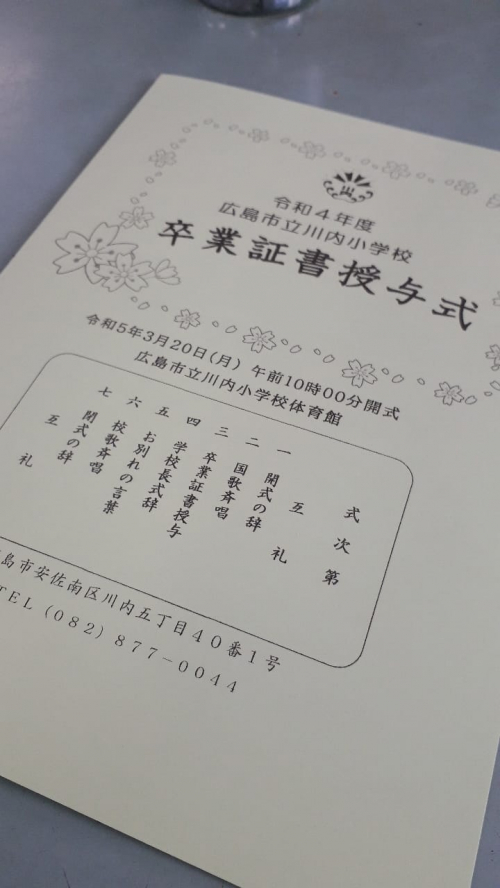 令和4年度
広島市立川内小学校
卒業証書授与式
令和5年3月20日(月) 午前10時00分開式
広島市立川内小学校体育館
式次第
互礼
一 開式の辞
二 国歌斉唱
三 卒業証書授与
四 学校長式辞
五 お別れの言葉
六 校歌斉唱
七 閉式の辞
互礼
島市安佐南区川内五丁目40番1号
TEL (082) 877-0044